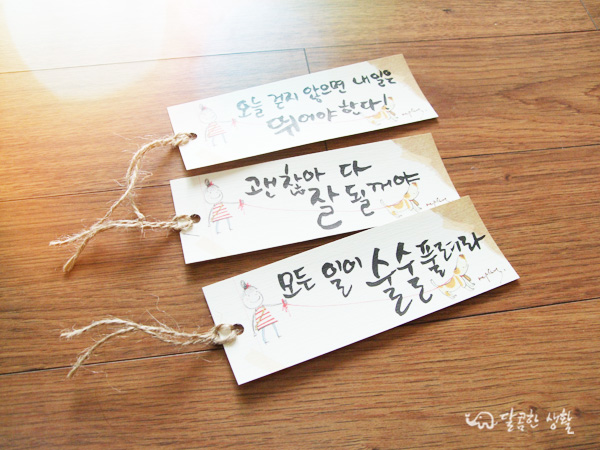 오늘 걷지 않으면 내일은
뛰어야 한다!
괜찮아 다
잘 될꺼야
모든 일이 술술풀려라
달콤한 생활